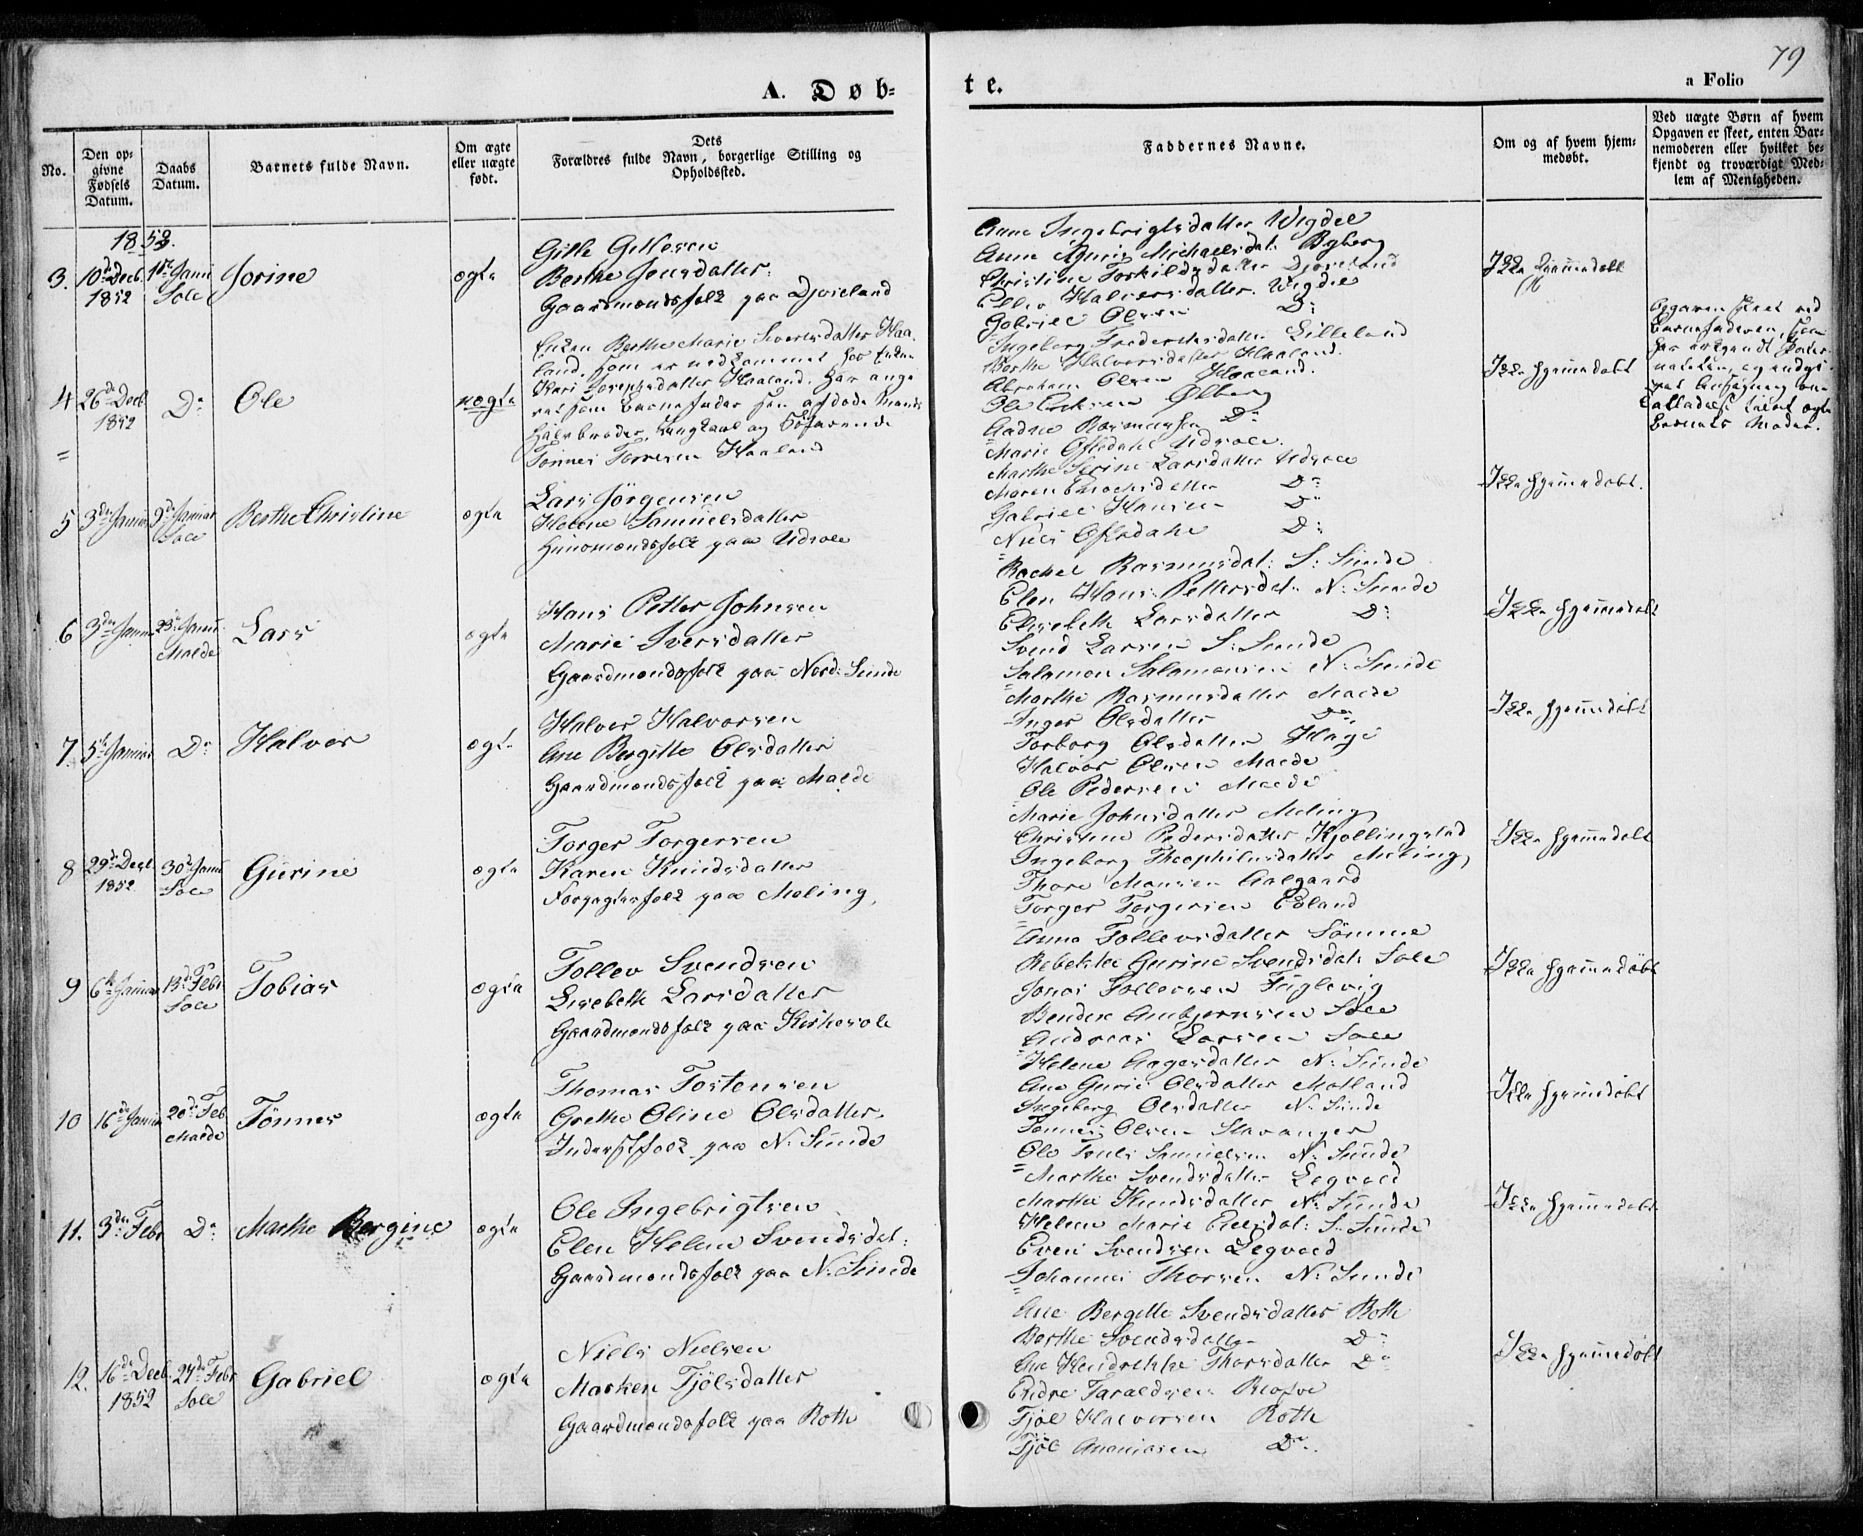 79
A. Døb-
te.
a Folio
No.
Den op-
givne
Fødsels
Datum.
Daabs
Datum.
Barnets fulde Navn.
Om ægte
eller uægte
født.
Dets
Forældres fulde Navn, borgerlige Stilling og
Opholdssted.
Faddernes Navne.
Om og af hvem hjem-
medøbt.
Ved uægte Børn af hvem
Opgaven er skeet, enten Bar-
nemoderen eller hvilket be-
kjendt og troværdigt Med-
lem af Menigheden.
1853.
3. 10de Decb. 1852
Sole
Jorine
ægte
Gitle Gitlesen
Berthe Jensdatter
Gaardmandsfolk paa Djoreland
Anne Ingebrigtsdatter Wigdel
Anne Michaelsdat: Byberg
Christine Torkildsdatter Djoreland
Ellen Halvorsdatter Wigdel
Gabriel Olsen D:
Ikke hjemmedøbt
4 26de Decb. 1852
Do
Ole
uægte
Enken Berthe Marie Haa-
land, som er nedkommet hos Enken
Haaland. Har ange-
vet som Barnefader sin afdøde Mands
Halvbroder, Ungkarl og Søfarende
Tønnes Haaland
Ingeborg Lilleland
Berthe Halvorsdatter Haaland.
Abraham Olsen Haaland.
Ole Ericksen Ølberg
Aadne Rasmussen Do
Ikke hjemmedøbt
Opgaven skeet ved
Barnefaderen, som
har
Barnets Moder.
5 3die Januar 9de Januar
Sole
Berthe Christine
ægte
Lars Jörgensen
Helene Samuelsdatter
Huusmandsfolk paa Udsole
Marie Ofstdahl Udsole.
Marthe Serine Larsdatter Udsole
Maren Enochsdatter Do
Gabriel Hansen Do
Niels Ofstdahl D:
Ikke hjemmedøbt.
6 3die Januar 23de Januar
Malde
Lars
ægte
Hans Petter Johnsen
Marie Iversdatter
Gaardmandsfolk paa Nord: Sunde
Rachel Rasmusdat: S: Sunde
Elen Hans Pettersdat: N: Sunde
Elisebeth Larsdatter D:
Svend Larsen S: Sunde
Salamon Salamonsen N: Sunde
Ikke hjemmedøbt
7. 5te Januar Do
Halvor
ægte
Halvor Halvorsen
Ane Bergitte Olsdatter
Gaardmandsfolk paa Malde
Marthe Rasmusdatter Malde
Inger Olsdatter Do
Torborg Olsdatter Hage
Halvor Olsen Malde
Ole Pedersen Malde
Ikke hjemmedøbt
8 29de Decb. 1852 30te Januar
Sole
Gurine
ægte
Torger Torgersen
Karen Knudsdatter
Forpagterfolk paa Meling
Marie Johnsdatter Meling
Christine Pedersdatter Kjøllingstad
Ingeborg Theophilusdatter Meling
Thore Monsen Aalgaard
Torger Torgersen Edland
Ikke hjemmedøbt
9 6te Januar 13de Febr
Sole
Tobias
ægte
Tollev Svendsen
Lisebeth Larsdatter
Gaardmandsfolk paa Kirkesole
Anna Tollevsdatter Sömme
Rebekka Gurine Svendsdat: Sole
Jonas Tollevsen Fuglevig
Bendix Anbjørnsen Sole
Andreas Larsen Sole
Ikke hjemmedøbt
10 16de Januar 20de Feb
Malde
Tönnes
ægte
Thomas Tostensen
Grethe Oline Olsdatter
Inderstfolk paa N: Sunde
Helene Aagesdatter N: Sunde
Ane Gurie Olsdatter Malland
Ingeborg Olsdatter N: Sunde
Tønnes Olsen Stavanger
Ole Samuelsen N: Sunde
Ikke hjemmedøbt
11. 3die Febr Do
Marthe Bergine
ægte
Ole Ingebrigtsen
Elen Helene Svendsdat:
Gaardmandsfolk paa N: Sunde
Marthe Svendsdatter Legvold
Marthe Knudsdatter N: Sunde
Helene Marie S: Sunde
Even Svendsen Legvold
Johannes Thorsen N: Sunde
Ikke hjemmedøbt
12. 16de Decb. 1852 27de Febr
Sole
Gabriel
ægte
Niels Nielsen
Marken Tjölsdatter
Gaardmandsfolk paa Roth
Ane Bergitte Svendsdatter Roth
Berthe Svendsdatter Do
Ane Hendrikke Thorsdatter Do
Endre Taraldsen
Tjöl Halvorsen Roth
Tjöl Ananiasen Do
Ikke hjemmedøbt